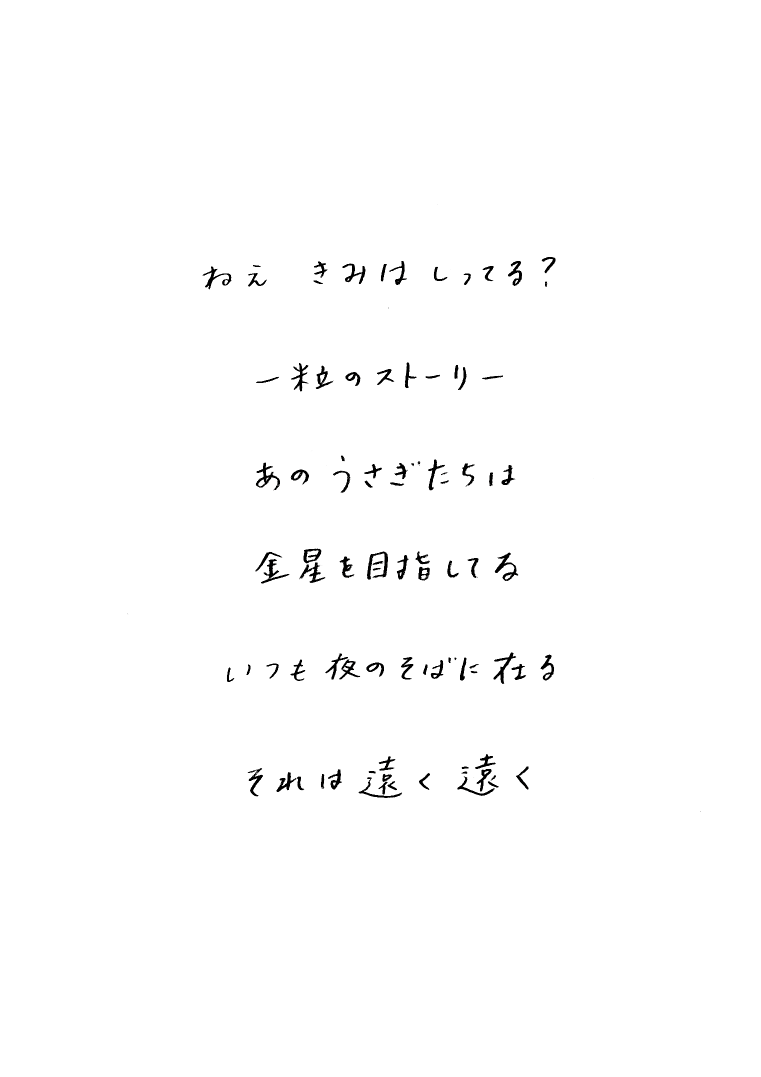 ねえ きみは しってる?
一粒のストーリー
あの うさぎたちは
金星を目指してる
いつも 夜のそばに 在る
それは 遠く 遠く